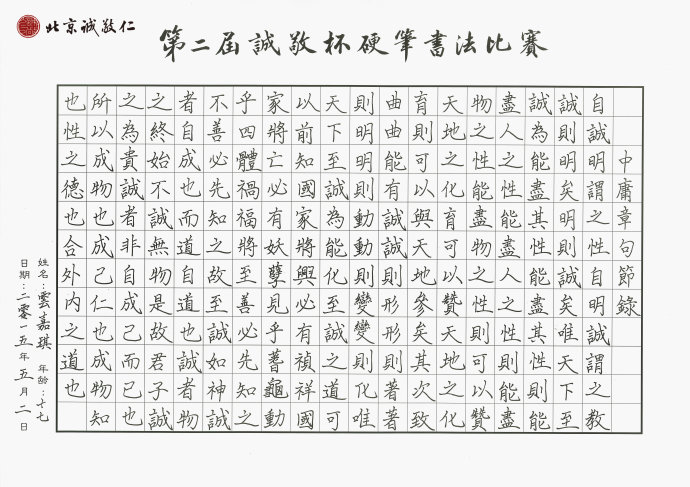 北京誠敬仁
第二屆誠敬杯硬筆書法比賽
中庸章句節錄
自誠明謂之性自明誠謂之教
誠則明矣明則誠矣唯天下至
誠為能盡其性能盡其性則能
盡人之性能盡人之性則能盡
物之性能盡物之性則可以贊
天地之化育可以贊天地之化
育則可以與天地參矣其次致
曲曲能有誠誠則形形則著著
則明明則動動則變變則化唯
天下至誠為能化至誠之道可
以前知國家將興必有禎祥國
家將亡必有妖孽見乎蓍龜動
乎四體禍福將至善必先知之
不善必先知之故至誠如神誠
者自成也而道自道也誠者物
之終始不誠無物是故君子誠
之為貴誠者非自成己而已也
所以成物也成己仁也成物知
也性之德也合外內之道也
姓名:雲嘉琪 年齡:十七
日期:二零一五年五月二日